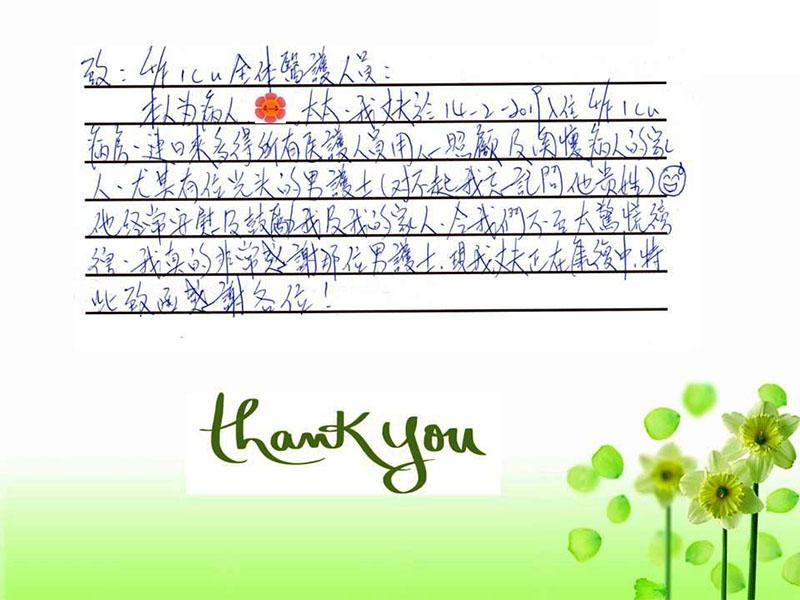 致：4/F ICU 全体醫護人員：
本人为病人 太太、我丈夫於 14-2-2019入住 4/F ICU
病房、連日來多得所有医護人員用心照顧及関懷病人的家
人、尤其有位光头的男護士(对不起我忘記問他貴姓)
他經常安慰及鼓勵我及我的家人、令我們不至太驚慌
我真的非常感謝那位男護士、現我丈夫正在康復中、特
此致函感謝各位！
thank you